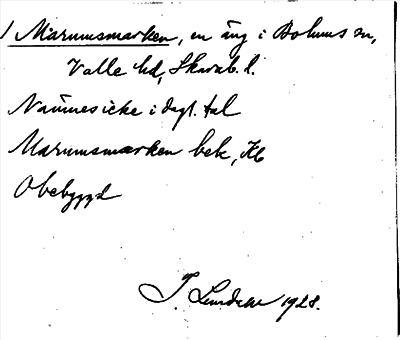 1 Marumsmarken, en äng i Bolums sn,
Valle hd, Skarab. l.
Nämnes icke i dagl. tal
Marumsmarken bek, Kb
Obebyggd
1928.